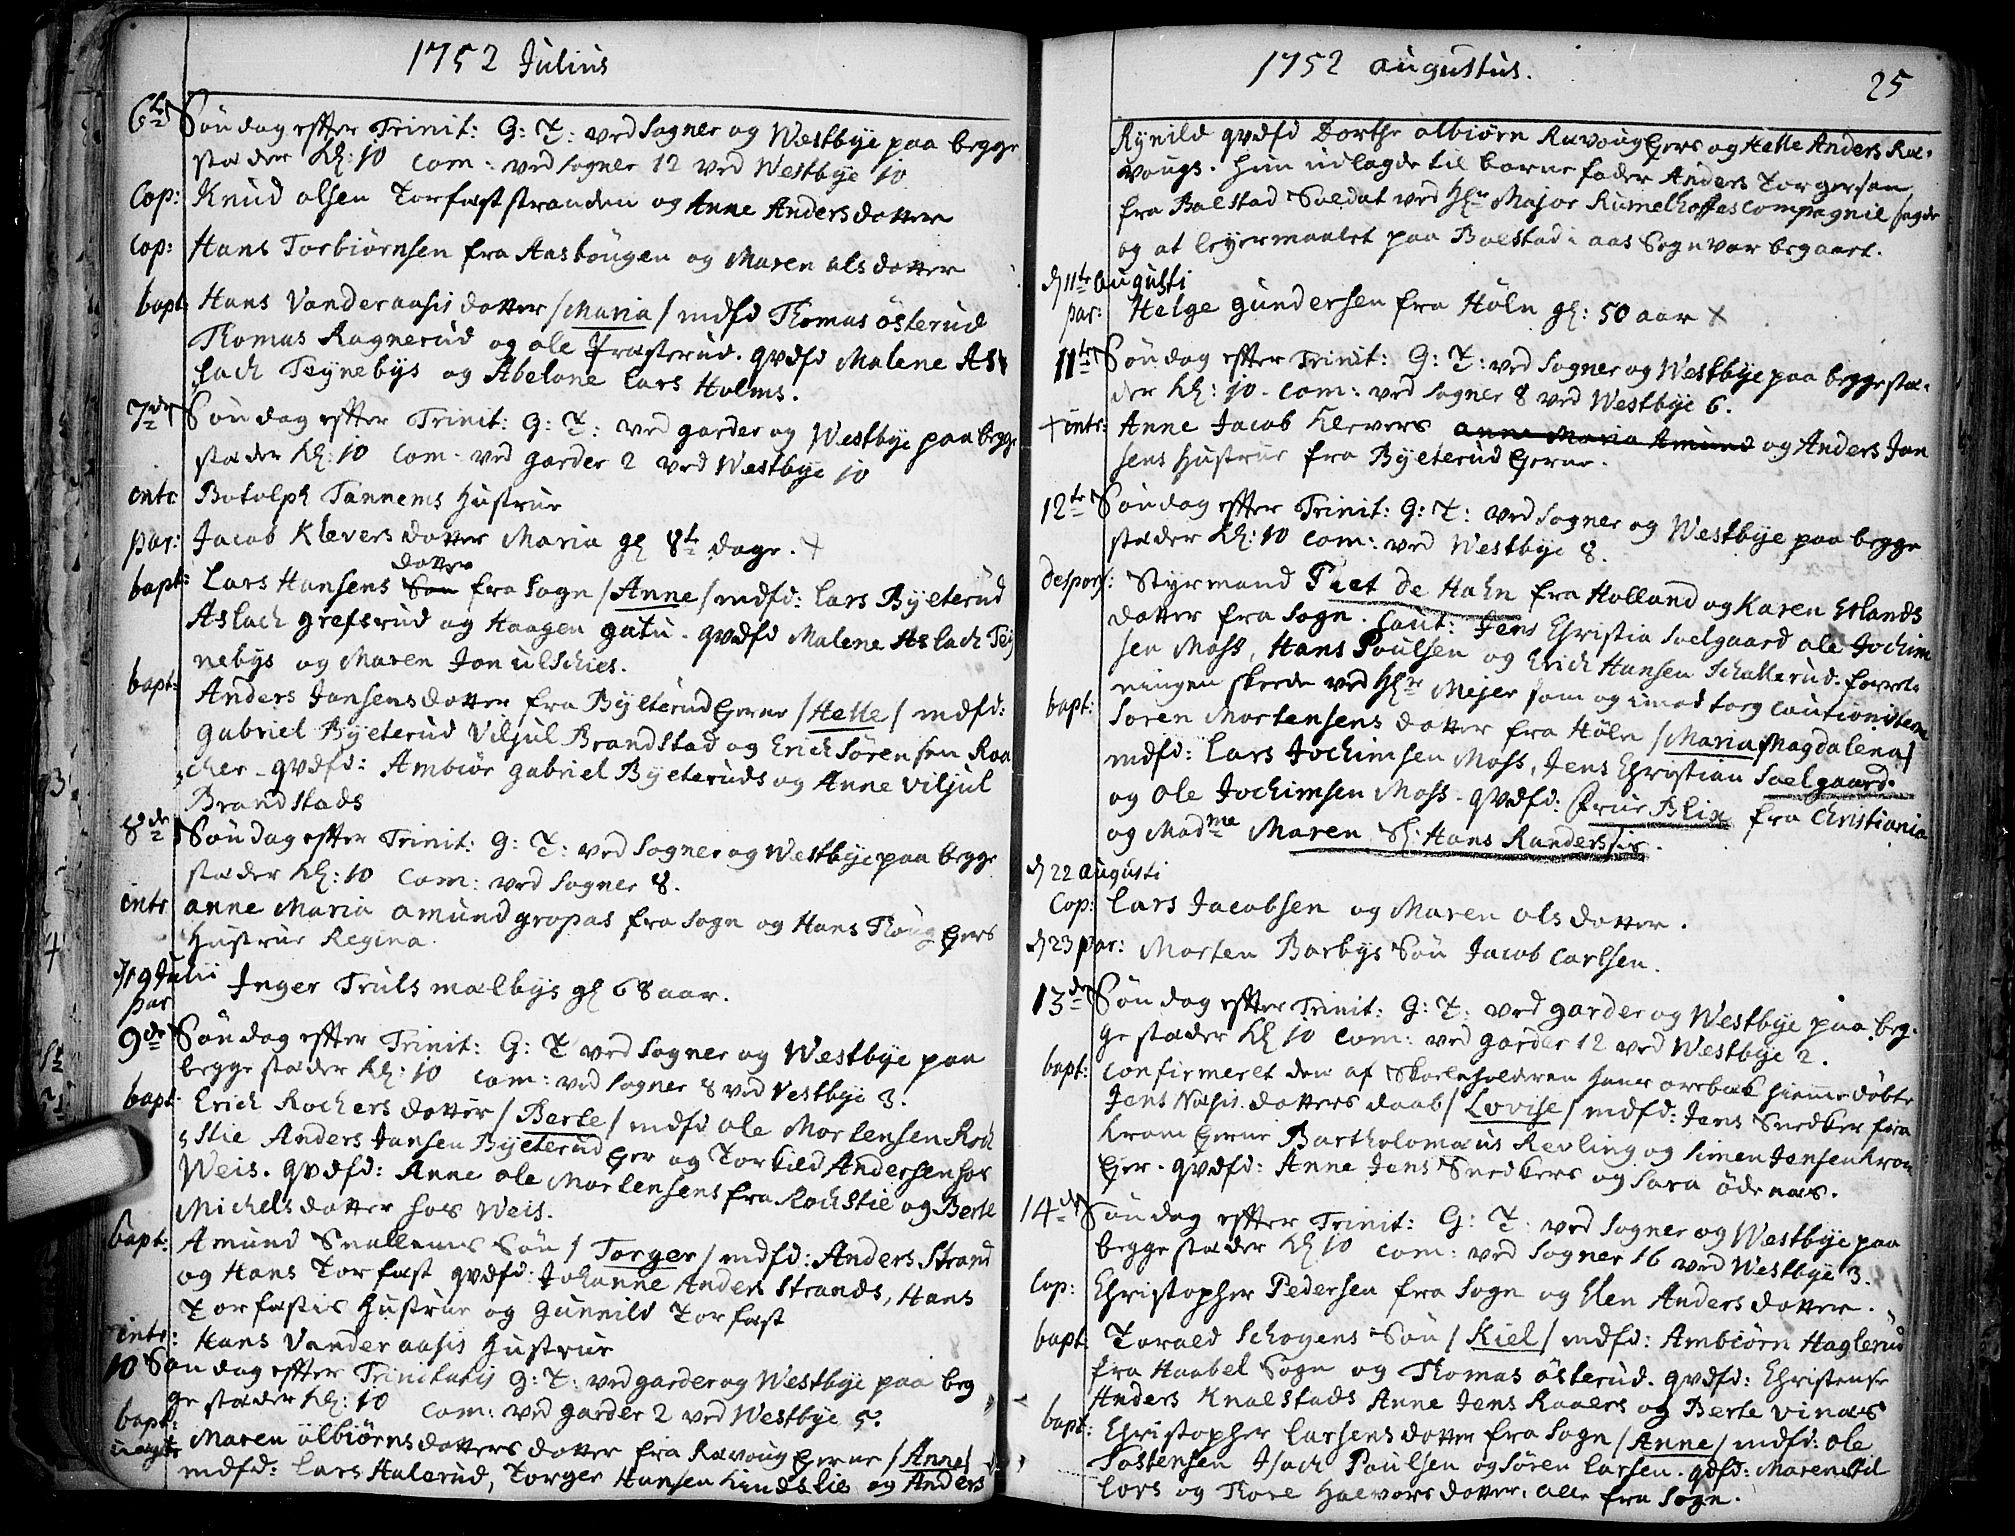 1752 Julius
6te Søndag efter Trinit: G: T: ved Sogner og Westbye paa begge
stæder Kl: 10 Com: ved Sogner 12 ved Westbye 10
Cop: Knud olsen Torfæststranden og Anne Andersdatter
cop: Hans Torbiørnsen fra Aasbøugen og Maren olsdatter
bapt: Hans Vanderaasis datter /Maria/ mdfd Thomas österud
Thomas Ragnerud og ole Fræsterud. qvdfd Malene As
lach Teynebys og Abelone Lars Holms.
7de Søndag efter Trinit: G: T: ved garder og Westbye paa begge
stæder Kl: 10 Com: ved garder 2 ved Westbye 10
intr Botolph Tannems Hustrue
par: Jacob Klevers datter Maria gl 8te dage. +
datter
bapt: Lars Hansens Søn fra Sogn /Anne/ mdfd: Lars Byeterud
Aslach grefsrud og Haagen gatu. qvdfd Malene Aslach Tey
nebys og Maren Jon ulschies.
bapt: Anders Jansens datter fra Byeterud Eyerne /Helle/ mdfd:
gabriel Byeterud Viljul Brandstad og Erich Sørensen Roa
cher. qvdfd: Ambiør gabriel Byeteruds og Anne viljul
Brandstads
8de Søndag efter Trinit: G: T: ved Sogner og Westbye paa begge
stæder Kl: 10 Com: ved Sogner 8.
intr anne Maria amund gropas fra Sogn og Hans Thoug Eyers
Hustrue Regina.
d 19 Julii
par Inger Truls mælbys gl 68 aar.
9de Søndag efter Trinit: G: T: ved Sogner og Westbye paa
begge stæder Kl: 10 Com: ved Sogner 8 ved Vestbye 3.
bapt. Erich Rochers datter /Berte/ mdfd ole Mortensen Roch
stie Anders Jansen Byeterud Eyer og Torkild Andersen hos
Weis. qvdfd: Anne ole Mortensens fra Rochstie og Berte
Michelsdatter hos Weis.
bapt: Amund Snallems Søn /Torger/ mdfd: Anders Strand
og Hans Torfæst qvdfd: Johanne Anders Strands, Hans
Torfæstis Hustrue og Gunnild Torfæst
intr: Hans Vanderaasis Hustrue
10 Søndag efter Trinitatis G: T: ved garder og Westbye paa beg
ge stæder Kl: 10 Com: ved garder 2 ved Westbye 5.
bapt: Maren ölbiørns datters datter fra Ravoug Eyerne /Anne/
uægte mdfd: Lars Halerud, Torger Hansen Kindslie og Anders
1752 augustus. 25
Rynild qvdfd Dorthe olbiørn Ravoug Eyers og Helle Anders Ra-
vougs. Hun udlagde til barne fader Anders Torgersen
fra Bølstad Soldat ved Hr Major Rumelhoffes Compagnie sagde
og at leyermaalet paa Bølstad i aas Sogn var begaaet.
d 11te augusti
par: Helge gundersen fra Höln gl: 50 aar +
11te Søndag efter Trinit: G: T: ved Sogner og Westbye paa begge stæ-
der Kl: 10. Com: ved Sogner 8 ved Westbye 6.
+ intr: Anne Jacob Klevers anne Maria Amund og Anders Jan
sens Hustrue fra Byeterud Eyerne.
12te Søndag efter Trinit: G: T: ved Sogner og Westbye paa begge
stæder Kl: 10 Com: ved Westbye 8.
despons: Styrmand Piet de Hahn fra Holland og Karen Erlands
datter fra Sogn. Caut: Jens Christia Soelgaard ole Jochim
sen Moss, Hans Poulsen og Erich Hansen Schallerud. forret
ningen skeede ved Hr Mejer som og imod tog Cautionisterne
bapt: Soren Mortensens datter fra Höln /Maria Magdalena/
mdfd: Lars Jochimsen Moss, Jens Christian Soelgaard
og Ole Jochimsen Moss. qvdfd: Frue Blix fra Christiania
og Madme Maren Sl: Hans Randerssis.
d 22 augusti
Cop: Lars Jacobsen og Maren olsdatter.
d 23 par: Morten Barbys Søn Jacob Carlsen.
13de Søndag efter Trinit: G: T: ved garder og Westbye paa beg-
ge stæder Kl 10 Com: ved garder 12 ved Westbye 2.
bapt: Confirmeret den af Skoleholderen Hans orrebæk hiemmedøbte
Jens Næsis datters daab /Lovise/ mdfd: Jens Snedker fra
Krom Eyerne Bartholomæus Revling og Simen Jensen Krom
Eyer. qvdfd: Anne Jens Snedkers og Sara ödenæs.
14de Søndag efter Trinit: G: T: ved Sogner og Westbye paa
begge stæder Kl 10 Com: ved Sogner 16 ved Westbye 3.
Cop: Christopher Pedersen fra Sogn og Elen Andersdatter.
bapt: Torald Schogens Søn /Kiel/ mdfd: Ambiörn Haglerud
fra Haabel Sogn og Thomas österud. qvdfd: Christense
Anders Knalstads Anne Jens Raaers og Berte vinæs
bapt: Christopher Larsens datter fra Sogn /Anne/ mdfd: ole
Tostensen Isach Poulsen og Søren Larsen. qdfd: Maren Nil
Lars og Thore Halvorsdatter, alle fra Sogn.